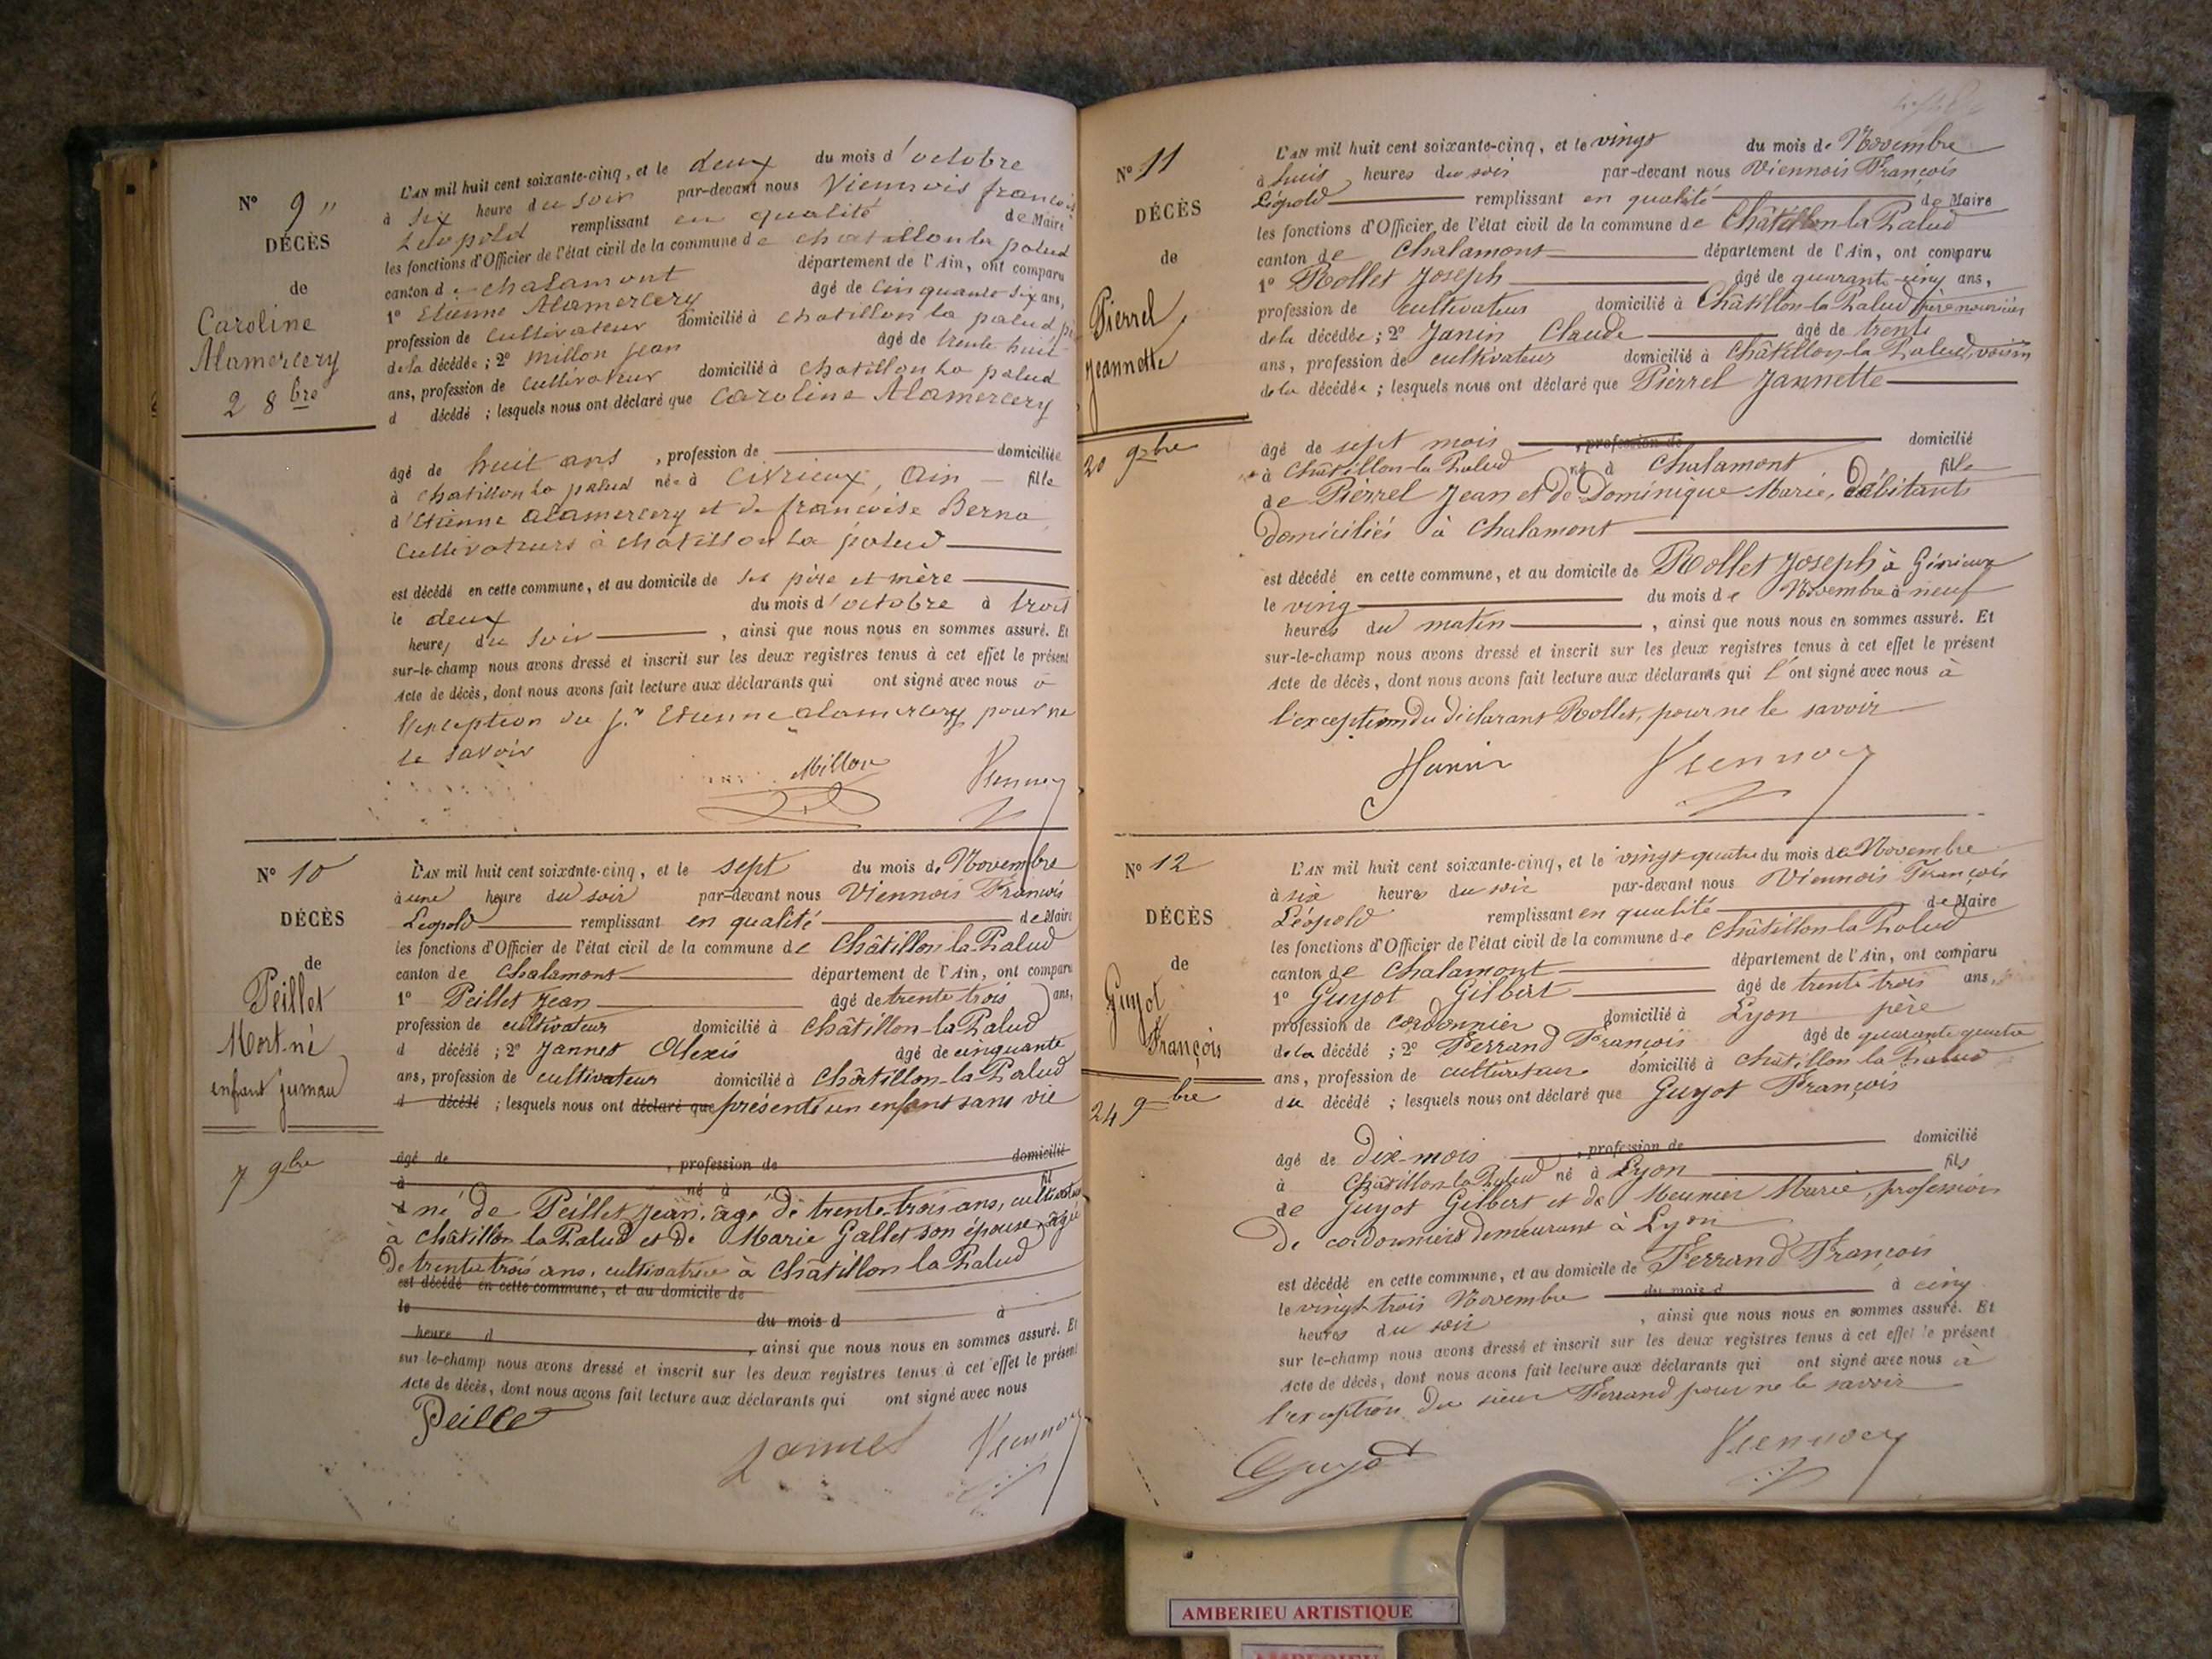 N° 9 "
DÉCÈS
de
Caroline
Alamercery
2 8bre
L'AN mil huit cent soixante-cinq, et le deux du mois d'octobre
à six heure du soir par-devant nous Viennois françois
Léopold remplissant en qualité de Maire
les fonctions d'Officier de l'état civil de la commune de chatillon la palud
canton de chalamont département de l'Ain, ont comparu
1° Etienne Alamercery âgé de cinquante six ans,
profession de cultivateur domicilié à chatillon la palud
de la décédée ; 2° Millon Jean âgé de trente huit
ans, profession de cultivateur domicilié à chatillon la palud
d décédé ; lesquels nous ont déclaré que Caroline Alamercery
âgé de huit ans , profession de domiciliée
à chatillon la palud née à Civrieux, Ain fille
d'Etienne alamercery et de françoise Berna
cultivateurs à chatillon la palud
est décédé en cette commune, et au domicile de ses père et mère
le deux du mois d'octobre à trois
heures du soir , ainsi que nous nous en sommes assuré. Et
sur-le-champ nous avons dressé et inscrit sur les deux registres tenus à cet effet le présent
Acte de décès, dont nous avons fait lecture aux déclarants qui ont signé avec nous à
l'exception du sr Etienne alamercery pour ne
le savoir
Millon Viennois
N° 10
DÉCÈS
de
Peillet
Mort-né
enfant jumau
7 9bre
L'AN mil huit cent soixante-cinq, et le sept du mois de Novembre
à une heure du soir par-devant nous Viennois François
Léopold remplissant en qualité de Maire
les fonctions d'Officier de l'état civil de la commune de Châtillon-la-Palud
canton de Chalamont département de l'Ain, ont comparu
1° Peillet Jean âgé de trente trois ans,
profession de cultivateur domicilié à Châtillon-la-Palud
d décédé ; 2° Jannet Alexis âgé de cinquante
ans, profession de cultivateur domicilié à Châtillon-la-Palud
d décédé ; lesquels nous ont déclaré que présenté un enfant sans vie
âgé de , profession de domicilié
à né à fil
né de Peillet Jean, âgé de trente-trois ans, cultivateur
à Châtillon la Palud et de Marie Gallet son épouse, âgée
de trente trois ans, cultivatrice à Châtillon la Palud
est décédé en cette commune, et au domicile de
le du mois d à
heure d , ainsi que nous nous en sommes assuré. Et
sur-le-champ nous avons dressé et inscrit sur les deux registres tenus à cet effet le présent
Acte de décès, dont nous avons fait lecture aux déclarants qui ont signé avec nous
Peillet
Jannet Viennois
N° 11
DÉCÈS
de
Pierrel
Jeannette
20 9bre
L'AN mil huit cent soixante-cinq, et le vingt du mois de Novembre
à huit heures du soir par-devant nous Viennois François
Léopold remplissant en qualité de Maire
les fonctions d'Officier de l'état civil de la commune de Châtillon-la-Palud
canton de Chalamont département de l'Ain, ont comparu
1° Rollet Joseph âgé de quarante-cinq ans,
profession de cultivateur domicilié à Châtillon-la-Palud père nourricier
de la décédée ; 2° Janin Claude âgé de trente
ans, profession de cultivateur domicilié à Châtillon-la-Palud, voisin
de la décédée ; lesquels nous ont déclaré que Pierrel Jannette
âgé de sept mois , profession de domicilié
à Châtillon-la-Palud né à Chalamont fille
de Pierrel Jean et de Dominique Marie, débitants
domiciliés à Chalamont
est décédé en cette commune, et au domicile de Rollet Joseph à Gévrieux
le vingt du mois de Novembre à neuf
heures du matin , ainsi que nous nous en sommes assuré. Et
sur-le-champ nous avons dressé et inscrit sur les deux registres tenus à cet effet le présent
Acte de décès, dont nous avons fait lecture aux déclarants qui l'ont signé avec nous à
l'exception du déclarant Rollet, pour ne le savoir
Janin Viennois
N° 12
DÉCÈS
de
Guyot
François
24 9bre
L'AN mil huit cent soixante-cinq, et le vingt-quatre du mois de Novembre
à six heures du soir par-devant nous Viennois François
Léopold remplissant en qualité de Maire
les fonctions d'Officier de l'état civil de la commune de Châtillon-la-Palud
canton de Chalamont département de l'Ain, ont comparu
1° Guyot Gilbert âgé de trente trois ans,
profession de cordonnier domicilié à Lyon père
de la décédé ; 2° Ferrand François âgé de quarante quatre
ans, profession de cultivateur domicilié à Châtillon la Palud
du décédé ; lesquels nous ont déclaré que Guyot François
âgé de dix-mois , profession de domicilié
à Châtillon-la-Palud né à Lyon fils
de Guyot Gilbert et de Meunier Marie, profession
de cordonniers demeurant à Lyon
est décédé en cette commune, et au domicile de Ferrand François
le vingt trois Novembre du mois d à cinq
heures du soir , ainsi que nous nous en sommes assuré. Et
sur le-champ nous avons dressé et inscrit sur les deux registres tenus à cet effet le présent
Acte de décès, dont nous avons fait lecture aux déclarants qui ont signé avec nous à
l'exception du sieur Ferrand pour ne le savoir
Guyot Viennois
AMBERIEU ARTISTIQUE
AMBERIEU